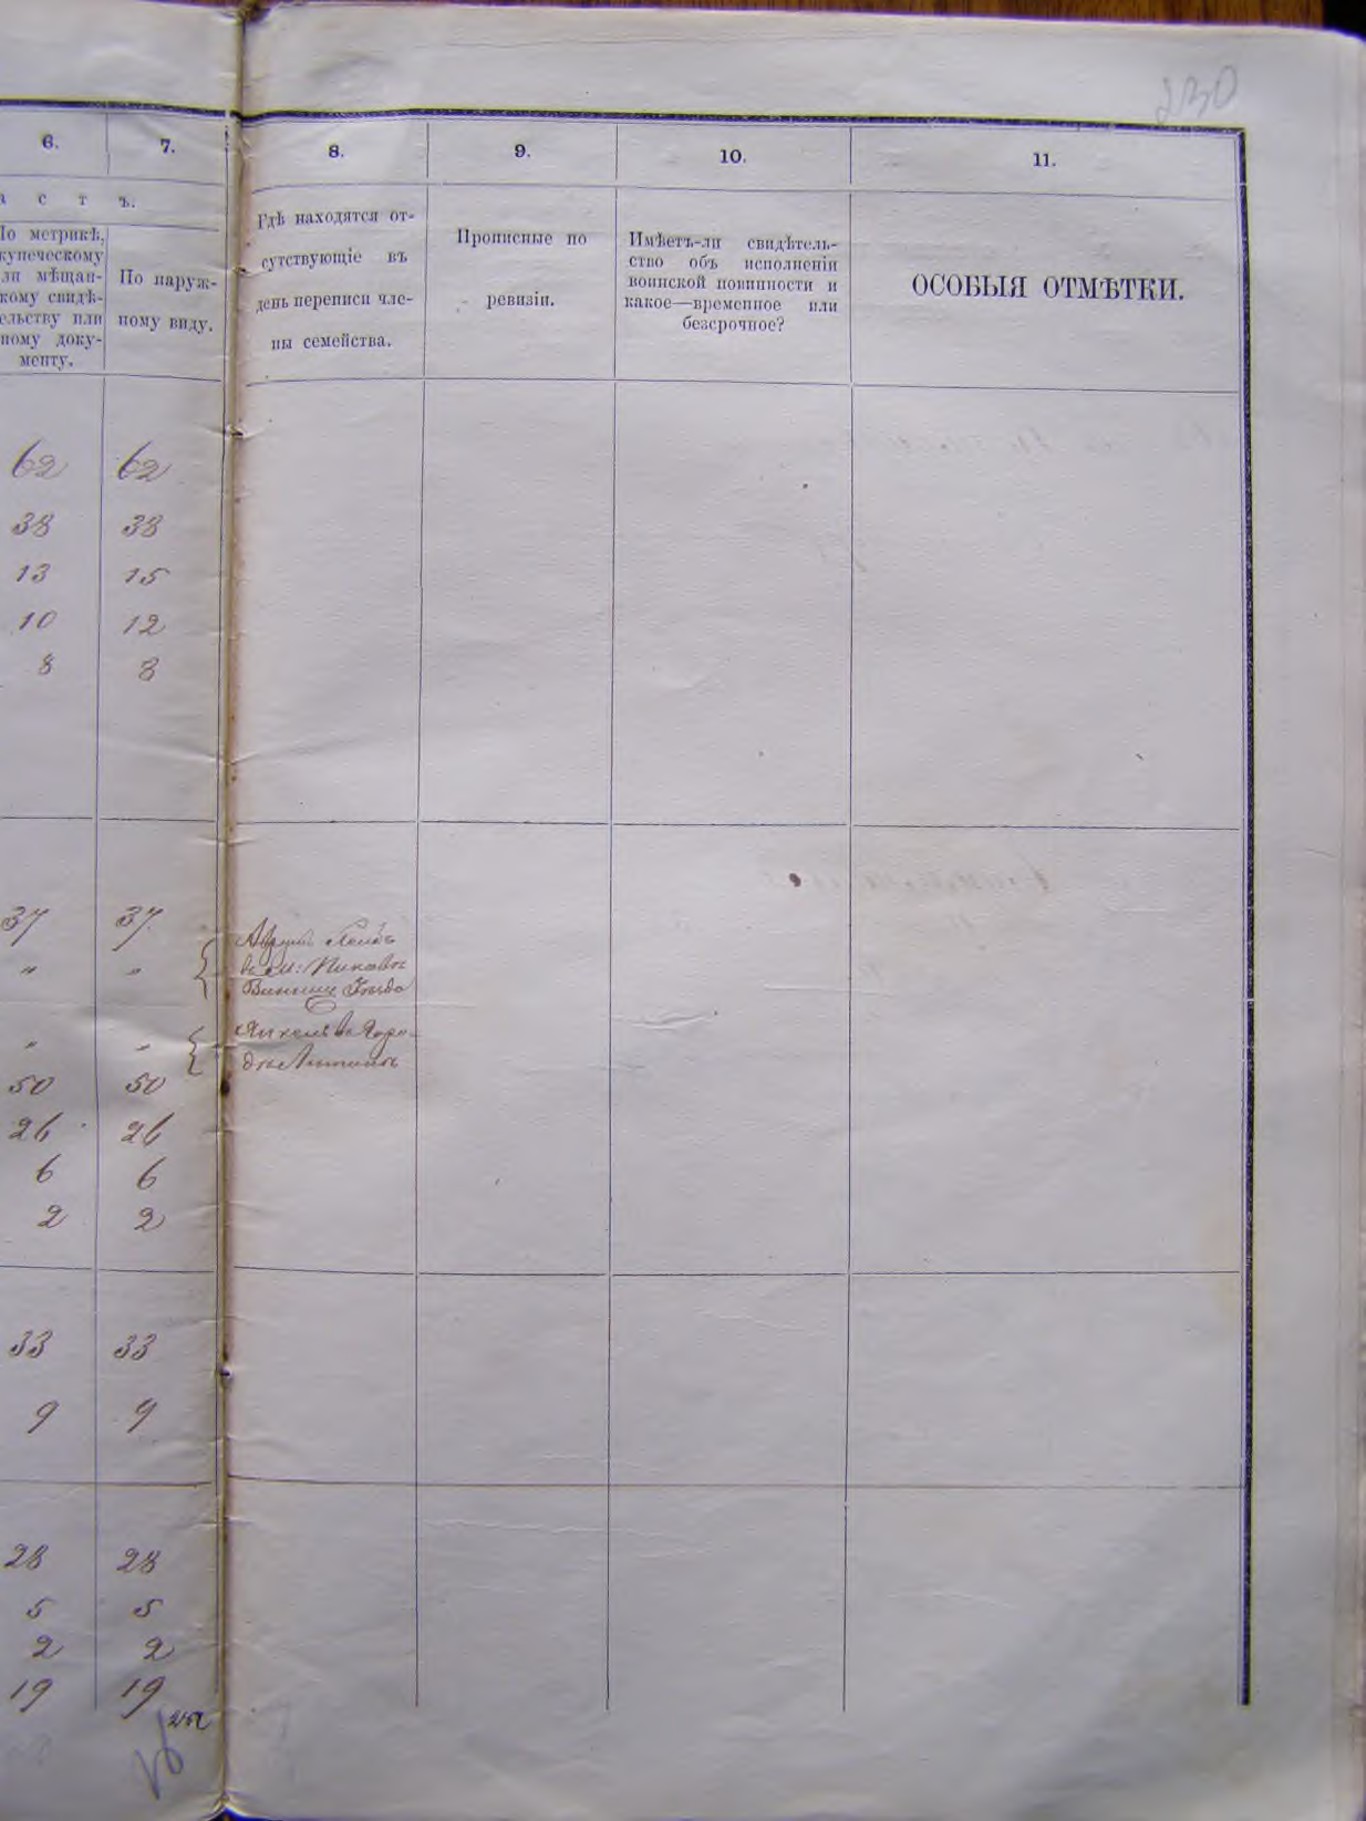 230
6.
7.
8.
9.
10.
11.
а с т ъ.
По метрикѣ,
купеческому
или мѣщан-
скому свидѣ-
тельству или
иному доку-
менту.
По наруж-
ному виду.
Гдѣ находятся от-
сутствующіе въ
день переписи чле-
ны семейства.
Прописные по
ревизіи.
Имѣетъ-ли свидѣтель-
ство объ исполненіи
воинской повинности и
какое—временное или
безсрочное?
ОСОБЫЯ ОТМѢТКИ.
62 62
38 38
13 15
10 12
8 8
37 37
" "
" "
въ м:
50 50
26 26
6 6
2 2
33 33
9 9
28 28
5 5
2 2
19 19